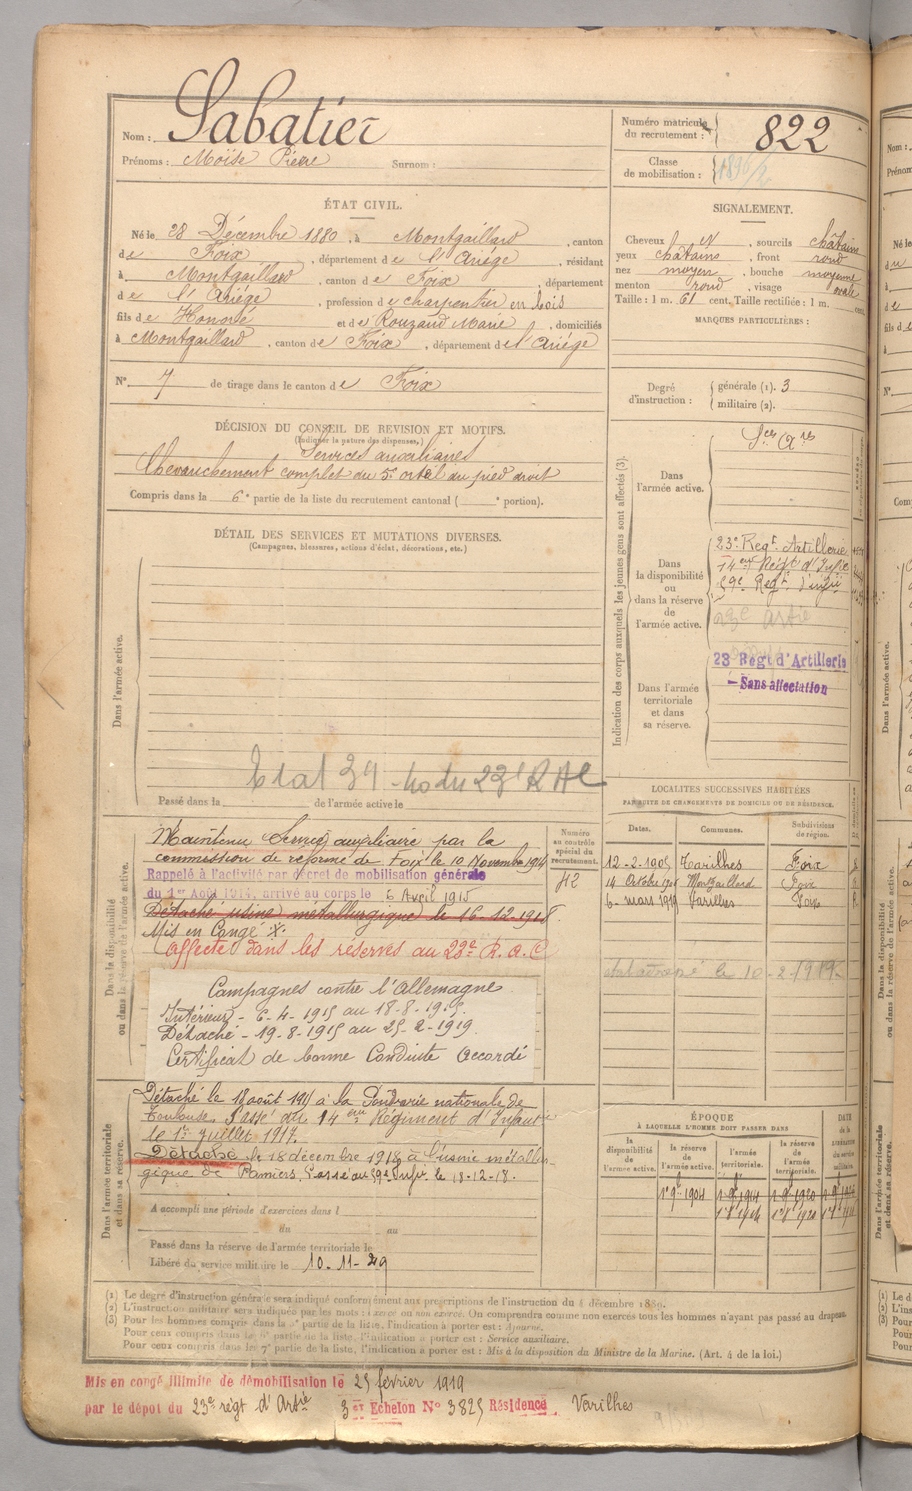 Nom : Sabatier
Prénoms : Moïse Pierre Surnom :
Numéro matricule
du recrutement : 822
Classe
de mobilisation : 1896/2
ÉTAT CIVIL.
Né le 28 Décembre 1880, à Montgaillard, canton
de Foix, département de l'Ariège, résidant
à Montgaillard, canton de Foix, département
de l'Ariége, profession de charpentier en bois
fils de Honoré et de Rouzaud Marie, domiciliés
à Montgaillard, canton de Foix, département de l'Ariége
N° 7 de tirage dans le canton de Foix
SIGNALEMENT.
Cheveux et sourcils châtains
yeux châtains, front rond
nez moyen, bouche moyenne
menton rond, visage ovale
Taille : 1 m. 61 cent. Taille rectifiée : 1 m. cent.
MARQUES PARTICULIÈRES :
Degré
d'instruction :
générale (1). 3
militaire (2).
DÉCISION DU CONSEIL DE REVISION ET MOTIFS.
(Indiquer la nature des dispenses.)
Services auxiliaires
Chevauchement complet du 5e orteil du pied droit
Compris dans la 6e partie de la liste du recrutement cantonal ( e portion).
DÉTAIL DES SERVICES ET MUTATIONS DIVERSES.
(Campagnes, blessures, actions d'éclat, décorations, etc.)
Dans l'armée active.
Etat 39 du 23e RAC
Passé dans la de l'armée active le
Indication des corps auxquels les jeunes gens sont affectés (3).
Dans
l'armée active.
Sces Ares
Dans
la disponibilité
ou
dans la réserve
de
l'armée active.
23e Regt. Artillerie
14eme Régt d'Infie
59e Regt. d'infie
23e Artie
23 Régt d'Artillerie
Sans affectation
Dans l'armée
territoriale
et dans
sa réserve.
LOCALITÉS SUCCESSIVES HABITÉES
PAR SUITE DE CHANGEMENTS DE DOMICILE OU DE RÉSIDENCE.
Dates. Communes. Subdivisions
de région.
12-2-1905 Varilhes Foix
14 Octobre Montgaillard Foix
6 mars 1919 Varilhes Foix
le 10-2-1919
Dans la disponibilité
ou dans la réserve de l'armée active.
Numéro
au contrôle
spécial du
recrutement.
42
Maintenu Service auxiliaire par la
commission de réforme de Foix le 10 Novembre 1914
Rappelé à l'activité par décret de mobilisation générale
du 1er Août 1914, arrivé au corps le 6 Avril 1915
Détaché usine métallurgique le 16-12-1918.
Mis en Congé
Affecté dans les réserves au 23e R.A.C
Campagnes contre l'Allemagne
Intérieur - 6-4-1915 au 18-8-1915.
Détaché - 19-8-1915 au 25-2-1919.
Certificat de bonne Conduite Accordé
Dans l'armée territoriale
et dans sa réserve.
Détaché le 18 août 191 à la Poudrerie nationale de
Toulouse. Passé au 14eme Régiment d'Infantie
le 1er juillet 1917.
Détaché le 18 décembre 1918 à l'usine métallur-
gique de Pamiers. Passé au 59e Infie le 18-12-18.
A accompli une période d'exercices dans l
du au
Passé dans la réserve de l'armée territoriale le
Libéré du service militaire le 10-11-29
ÉPOQUE
À LAQUELLE L'HOMME DOIT PASSER DANS
la
disponibilité
de
l'armée active.
la réserve
de
l'armée active.
l'armée
territoriale.
la réserve
de
l'armée
territoriale.
DATE
de la
libération
du service
militaire.
1er 9bre 1904
(1) Le degré d'instruction générale sera indiqué conformément aux prescriptions de l'instruction du 4 décembre 1889.
(2) L'instruction militaire sera indiquée par les mots : exercé ou non exercé. On comprendra comme non exercés tous les hommes n'ayant pas passé au drapeau.
(3) Pour les hommes compris dans la 5e partie de la liste, l'indication à porter est : Ajourné.
Pour ceux compris dans la 6e partie de la liste, l'indication à porter est : Service auxiliaire.
Pour ceux compris dans le 7e partie de la liste, l'indication à porter est : Mis à la disposition du Ministre de la Marine. (Art. 4 de la loi.)
Mis en congé illimité de démobilisation le 25 février 1919
par le dépôt du 23e régt d'Artie 3er Echelon N° 3825 Résidence Varilhes